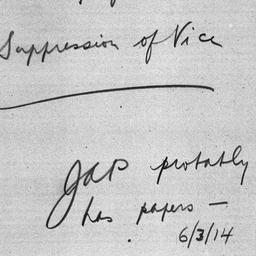 Suppression of Vice
JAP probably
has papers —
6/3/14